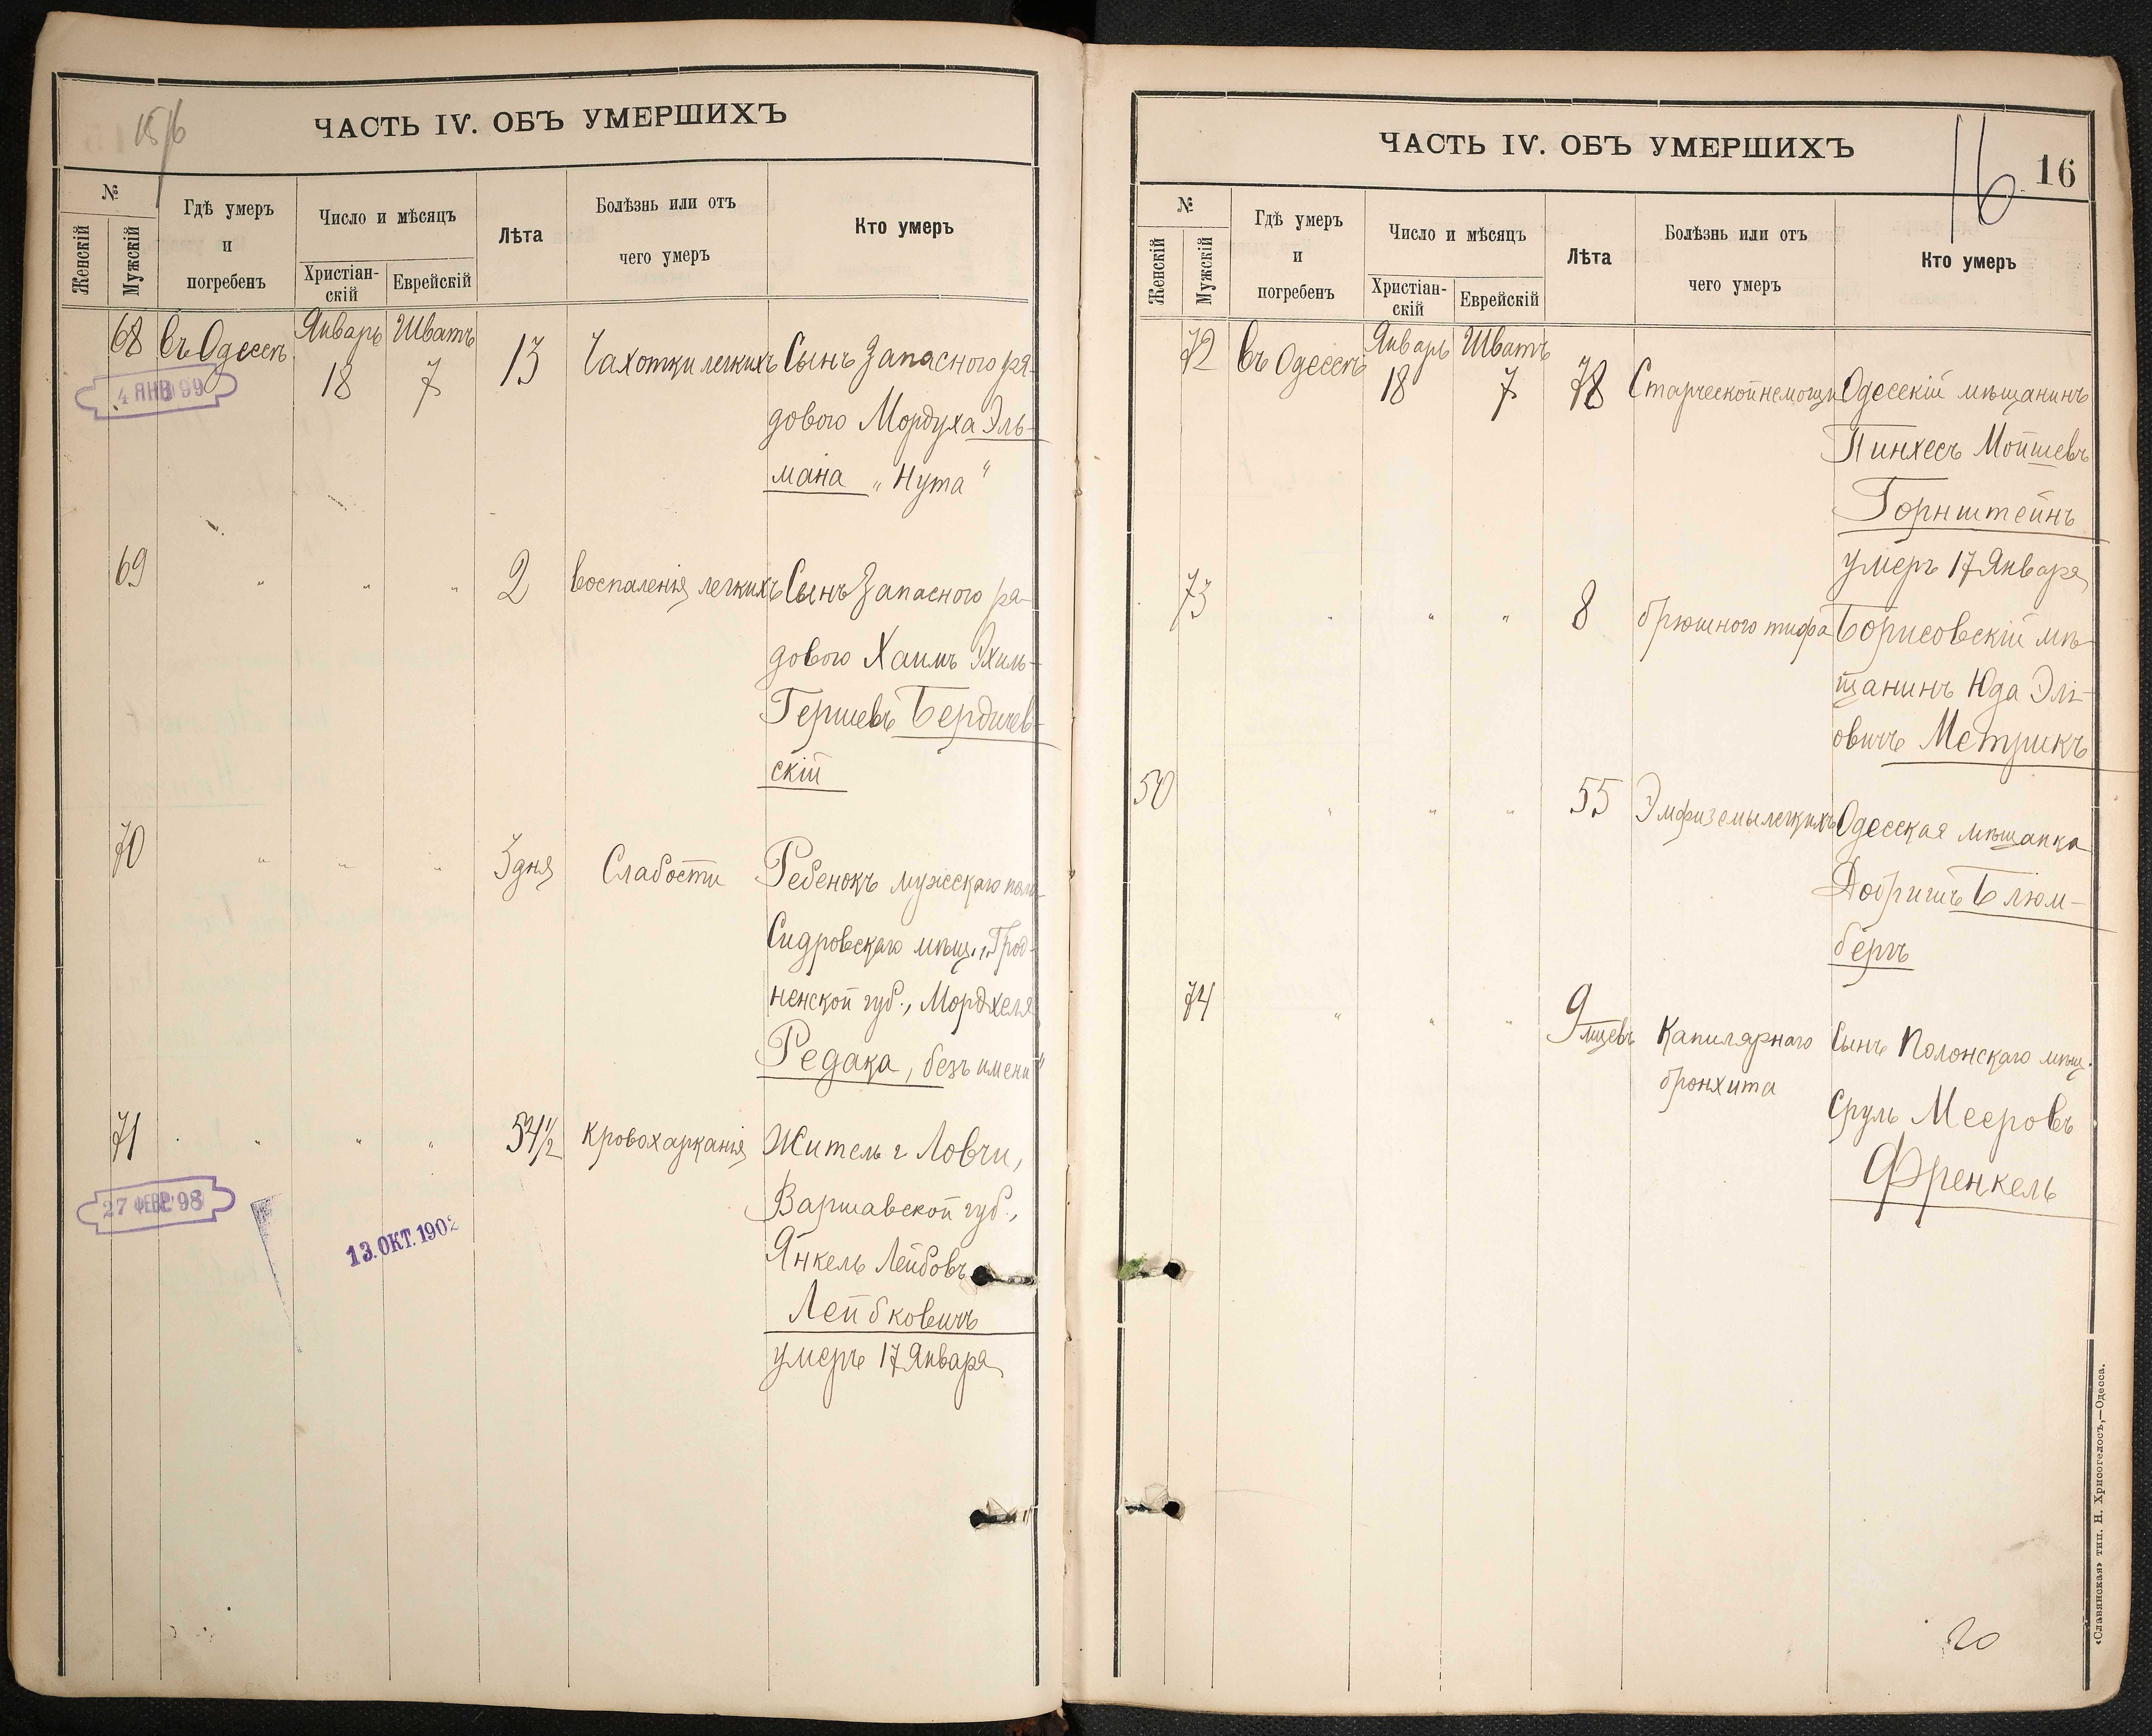 15/16
ЧАСТЬ IV. ОБЪ УМЕРШИХЪ
№
Женскій
Мужскій
Гдѣ умеръ
и
погребенъ
Число и мѣсяцъ
Христіан-
скій
Еврейскій
Лѣта
Болѣзнь или отъ
чего умеръ
Кто умеръ
68 въ Одессѣ Январь 18 Шватъ 7 13 Чахотки легкихъ Сынъ Запасного ря-
4 ЯНВ 99
дового Мордуха Эль-
мана „Нута“
69 " " " 2 Воспаленія легкихъ Сынъ Запасного ря-
дового Хаимъ Эхиль-
Гершевъ Бердичев-
скій
70 " " " 3 дня Слабости Ребенокъ мужескаго пола
Сидровскаго мѣщ., Грод-
ненской губ., Мордхеля
Редака, безъ имени"
71 " " " 54 1/2 Кровохарканія Житель г Ловчи,
27 ФЕВР. 98
Варшавской губ.,
13. ОКТ. 1902
Янкель Лейбовъ
Лейбковичъ
умеръ 17 Января
ЧАСТЬ IV. ОБЪ УМЕРШИХЪ
16
16
№
Женскій
Мужскій
Гдѣ умеръ
и
погребенъ
Число и мѣсяцъ
Христіан-
скій
Еврейскій
Лѣта
Болѣзнь или отъ
чего умеръ
Кто умеръ
72 въ Одессѣ Январь 18 Шватъ 7 78 Старческой немощи Одесскій мѣщанинъ
Пинхесъ Мойшевъ
Горнштейнъ
умеръ 17 Января
73 " " " 8 брюшного тифа Борисовскій мѣ-
щанинъ Юда Элі-
овичъ Метрикъ
50 " " " 55 Эмфиземы легкихъ Одесская мѣщанка
Добришъ Блюм-
бергъ
74 " " " 9 мцевъ Капилярнаго Сынъ Полонскаго мѣщ.
бронхита
Сруль Мееровъ
Френкель
20
«Славянская» тип. Н. Хрисогелосъ,—Одесса.